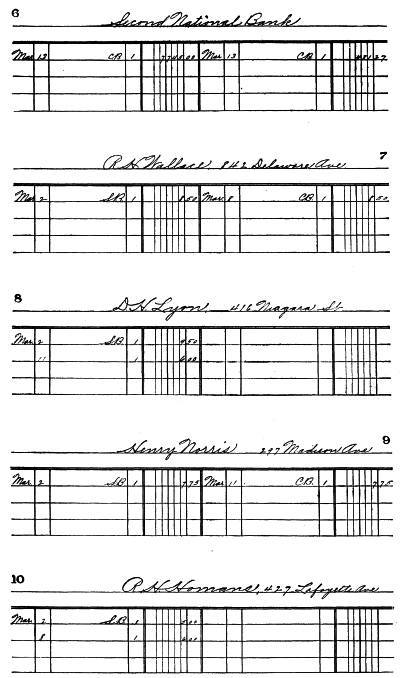 6
Second National Bank
Mar 13 CB 1 Mar 13 CB 1
7
R H Wallace, 842 Delaware Ave
Mar 2 SB 1 8 50 Mar 8 CB 1 8 50
8
D H Lyon, 416 Niagara St
Mar 2 SB 1 9 50
11 1 6 00
9
Henry Norris 297 Madison Ave
Mar 2 SB 1 7 75 Mar 11 CB 1 7 75
10
R H Homans, 427 Lafayette Ave
Mar 2 SB 1 5 00
8 1 6 00